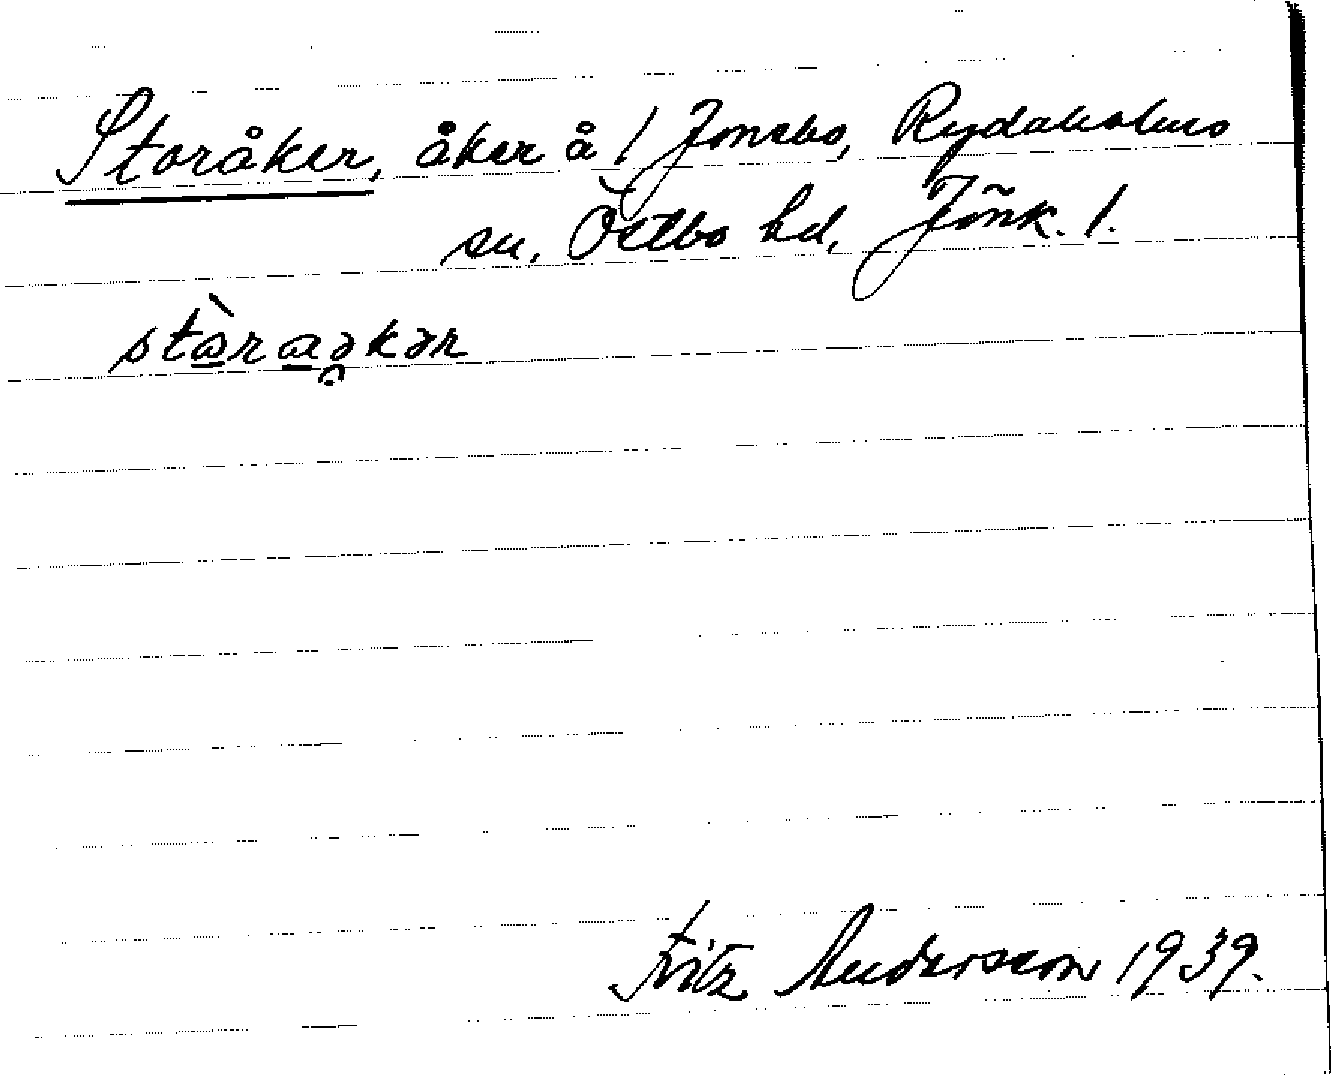 Storåker, åker å 1 Jonsbo, Rydaholms
sn, Östbo hd, Jönk. l.
stàraəkər
Fritz Andersson 1939.